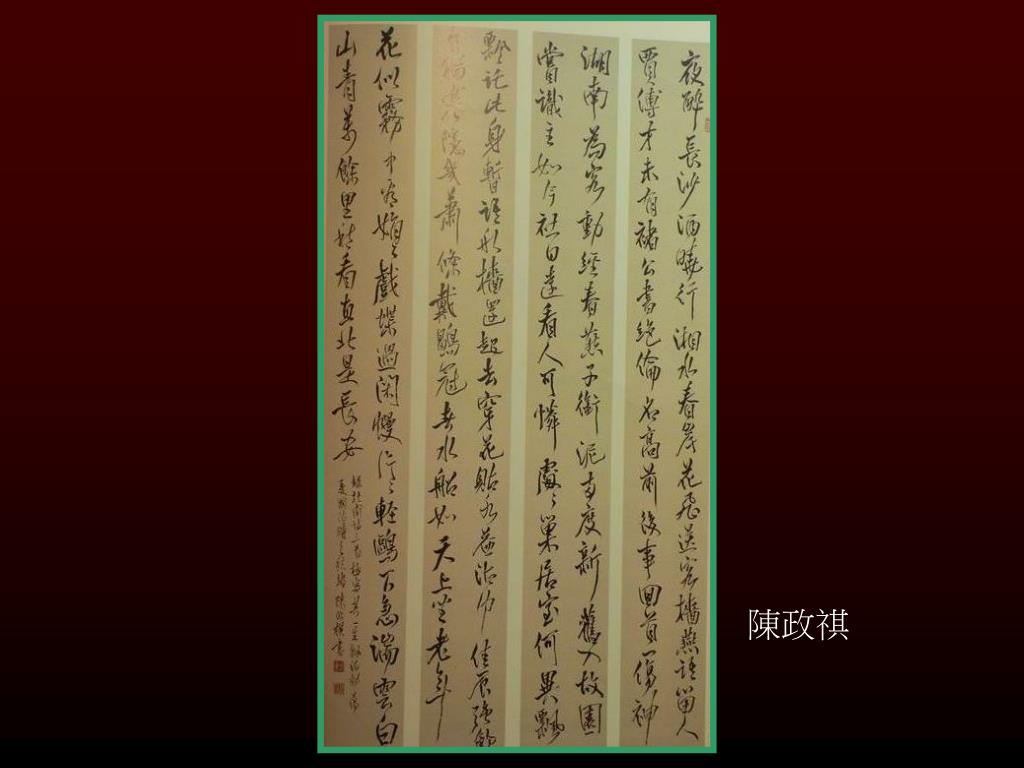 夜醉長沙酒曉行湘水春岸花飛送客檣燕語留人
賈傅才未有褚公書絕倫名高前後事回首一傷神
湖南為客動經春燕子銜泥兩度新舊入故園
嘗識主如今社日遠看人可憐處々巢居室何異飄
飄託此身暫語船檣還起去穿花貼水益沾巾佳辰強飲
食猶寒隱几蕭條戴鶡冠春水船如天上坐老年
花似霧中看娟々戲蝶過閑幔片々輕鷗下急湍雲白
山青萬餘里愁看直北是長安
錄杜甫詩三首
陳政祺書
陳政祺